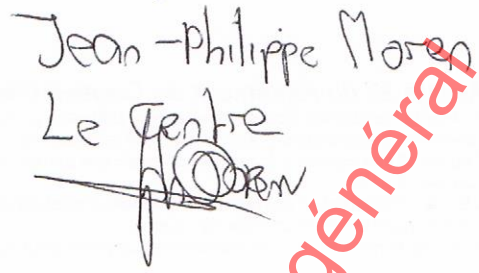 Jean-Philippe Moren
Le Gentre
général